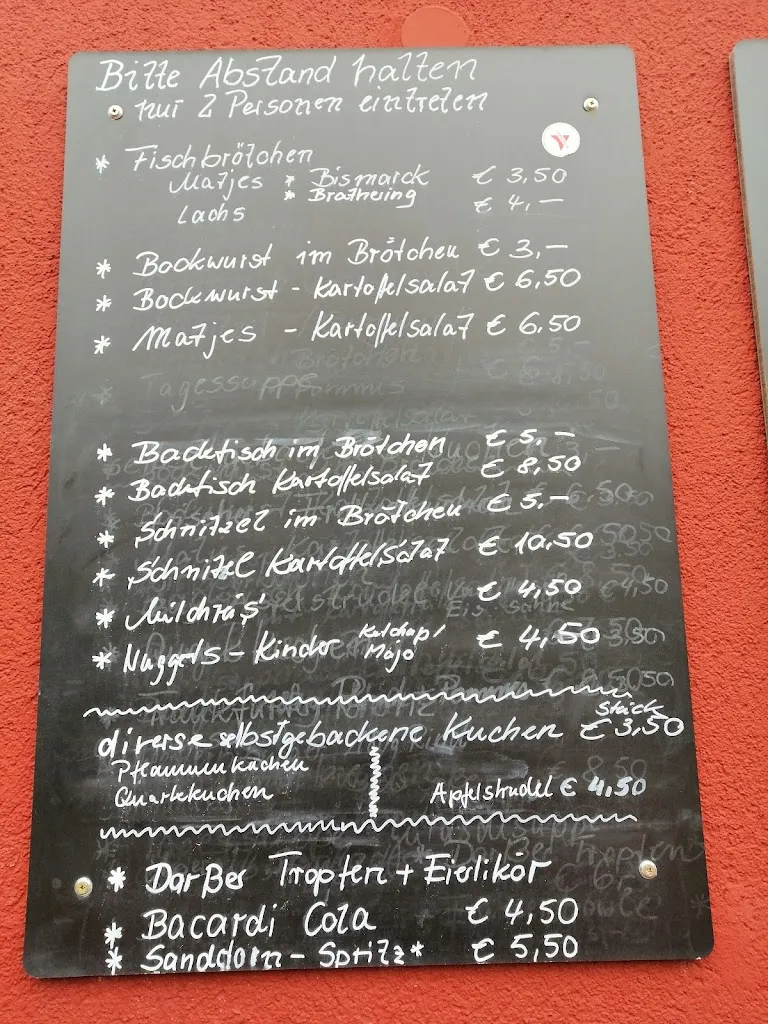 Bitte Abstand halten
nur 2 Personen eintreten
* Fischbrötchen
Matjes * Bismarck € 3,50
* Brathering
Lachs € 4,-
* Bockwurst im Brötchen € 3,-
* Bockwurst - Kartoffelsalat € 6,50
* Matjes - Kartoffelsalat € 6,50
Tagessuppe
* Backfisch im Brötchen € 5,-
* Backfisch Kartoffelsalat € 8,50
* Schnitzel im Brötchen € 5,-
* Schnitzel Kartoffelsalat € 10,50
* Milchreis € 4,50
* Nuggets - Kinder Ketchup/ Majo € 4,50
diverse selbstgebackene Kuchen Stück € 3,50
Pflaumenkuchen
Quarkkuchen
Apfelstrudel € 4,50
* Darßer Tropfen + Eierlikör
* Bacardi Cola € 4,50
* Sanddorn - Spritz * € 5,50